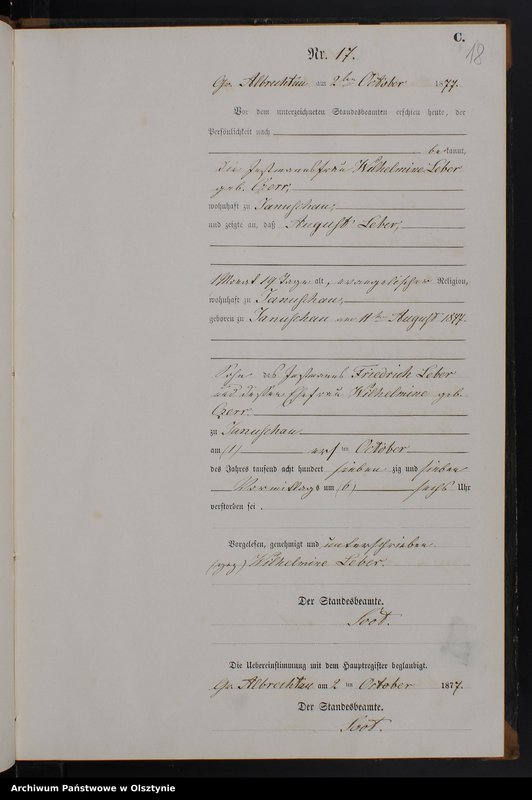 C.
18
Nr. 17.
Gr. Albrechtau am 2ten October 1877.
Vor dem unterzeichneten Standesbeamten erschien heute, der
Persönlichkeit nach
bekannt,
die Instmannsfrau Wilhelmine Leber
geb. Czerr,
wohnhaft zu Januschau,
und zeigte an, daß August Leber,
1 Monat 19 Tage alt, evangelischer Religion,
wohnhaft zu Januschau,
geboren zu Januschau am 11ten August 1877.
Sohn des Instmanns Friedrich Leber
und dessen Ehefrau Wilhelmine geb.
Czerr.
zu Januschau
am (1) ersten October
des Jahres tausend acht hundert siebenzig und sieben
Vormittags um (6) sechs Uhr
verstorben sei.
Vorgelesen, genehmigt und unterschrieben
(gez) Wilhelmine Leber.
Der Standesbeamte.
Die Uebereinstimmung mit dem Hauptregister beglaubigt.
Gr. Albrechtau am 2 ten October 1877.
Der Standesbeamte.
Archiwum Państwowe w Olsztynie